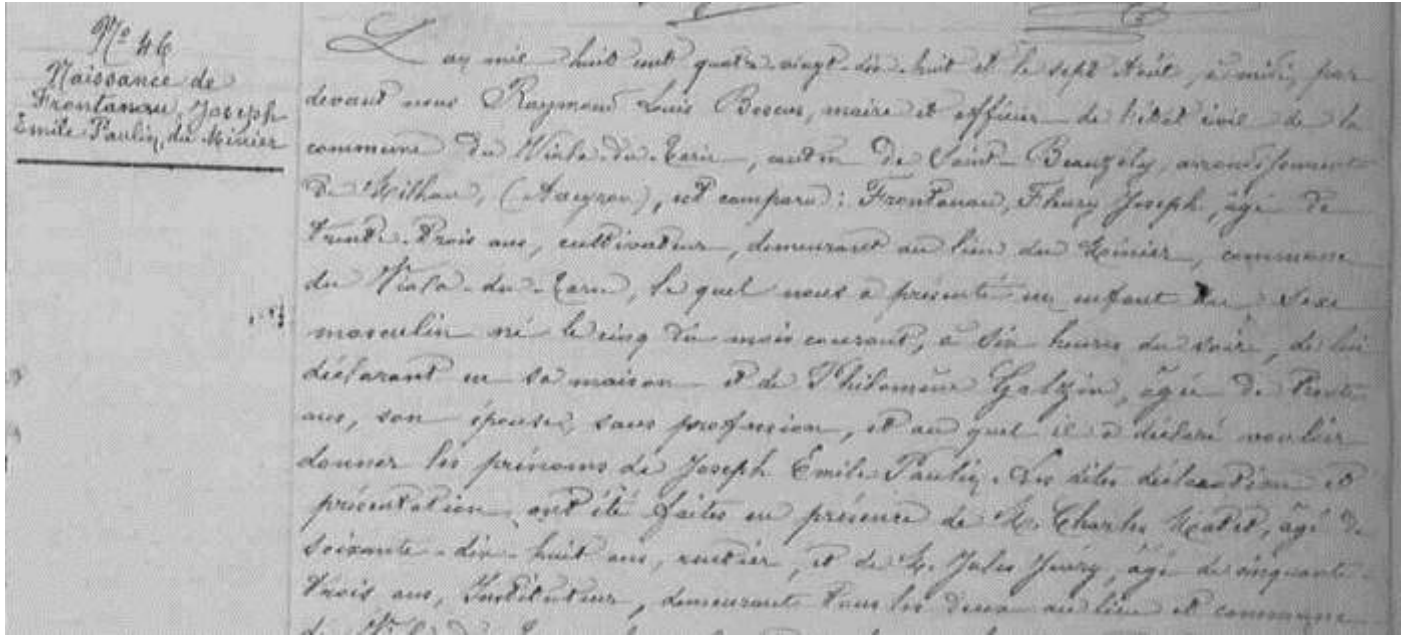 Nº 46
Naissance de
Frontanau, Joseph
Emile Paulin, du Minier
L'an mil huit cent quatre-vingt-dix-huit et le sept Août, à midi, par
devant nous Raymond Louis Boscus, maire et officier de l'état civil de la
commune du Viala-du-Tarn, canton de Saint-Beauzély, arrondissement
de Milhau, (Aveyron), est comparu : Frontanau, Fleury Joseph, âgé de
trente-trois ans, cultivateur, demeurant au lieu du Minier, commune
du Viala-du-Tarn, le quel nous a présenté un enfant du sexe
masculin né le cinq du mois courant, à six heures du soir, de lui
déclarant en sa maison et de Philomène Galzin, âgée de trente
ans, son épouse, sans profession, et au quel il a déclaré vouloir
donner les prénoms de Joseph Emile Paulin. Les dites déclaration et
présentation ont été faites en présence de M. Charles, âgé de
soixante-dix-huit ans, rentier, et de M. Jules, âgé de cinquante-
trois ans, Instituteur, demeurants tous les deux au lieu et commune